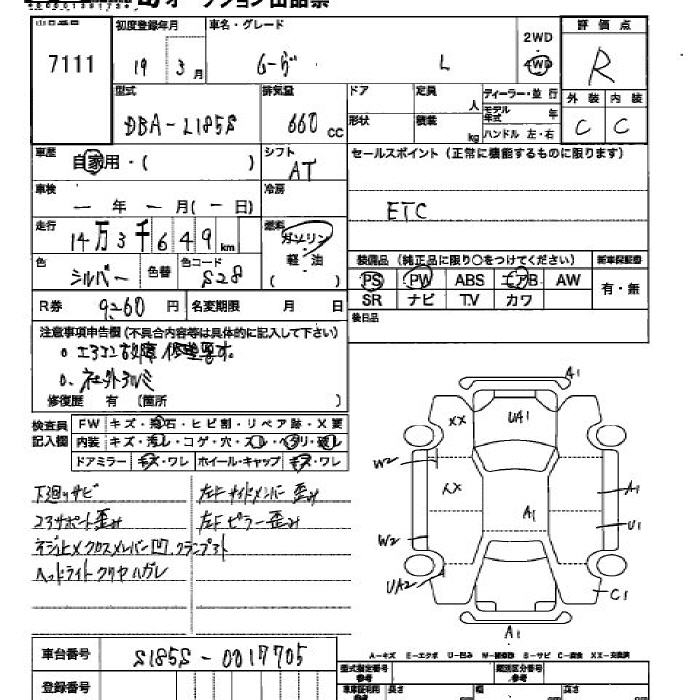 オークション出品票
出品番号 初度登録年月 車名・グレード 2WD 評価点
7111 19 3月 ムーヴ L 4WD R
型式 排気量 ドア 定員 人 ディーラー・並行 外装 内装
DBA-L185S 660 cc 形状 積載 kg モデル年式 年 C C
ハンドル 左・右
車歴 自家用・( ) シフト AT セールスポイント(正常に機能するものに限ります)
車検 ー年ー月(ー日) 冷房
ETC
走行 14万3千649km 燃料 ガソリン
軽油
( )
色 シルバー 色替 色コード S28 装備品(純正品に限り○をつけてください) 新車保証書
PS PW ABS エアB AW 有・無
R券 9260円 名変期限 月 日 SR ナビ T.V カワ
後日品
注意事項申告欄(不具合内容等は具体的に記入して下さい)
o.エアコン故障 修理要す。
o.社外アルミ
修復歴 有 (箇所 )
検査員記入欄 FW キズ・飛石・ヒビ割・リペア跡・X要
内装 キズ・汚レ・コゲ・穴・スレ・ヘタリ・破レ
ドアミラー キズ・ワレ ホイール・キャップ キズ・ワレ
下廻りサビ 左Fサイドメンバー歪み
コアサポート歪み 左Fピラー歪み
ネジ止メクロスメンバー凹,クランプ
ヘッドライトクリヤハガレ
A1
XX UA1
W2
XX A1
A1 U1
W2
UA2 C1
A1
車台番号 S185S-0017705
A-キズ E-エクボ U-凹み W-補修跡 S-サビ C-腐食 XX-交換済
登録番号 型式指定番号 参考 類別区分番号 参考
車車証利用 参考 長さ 幅 高さ